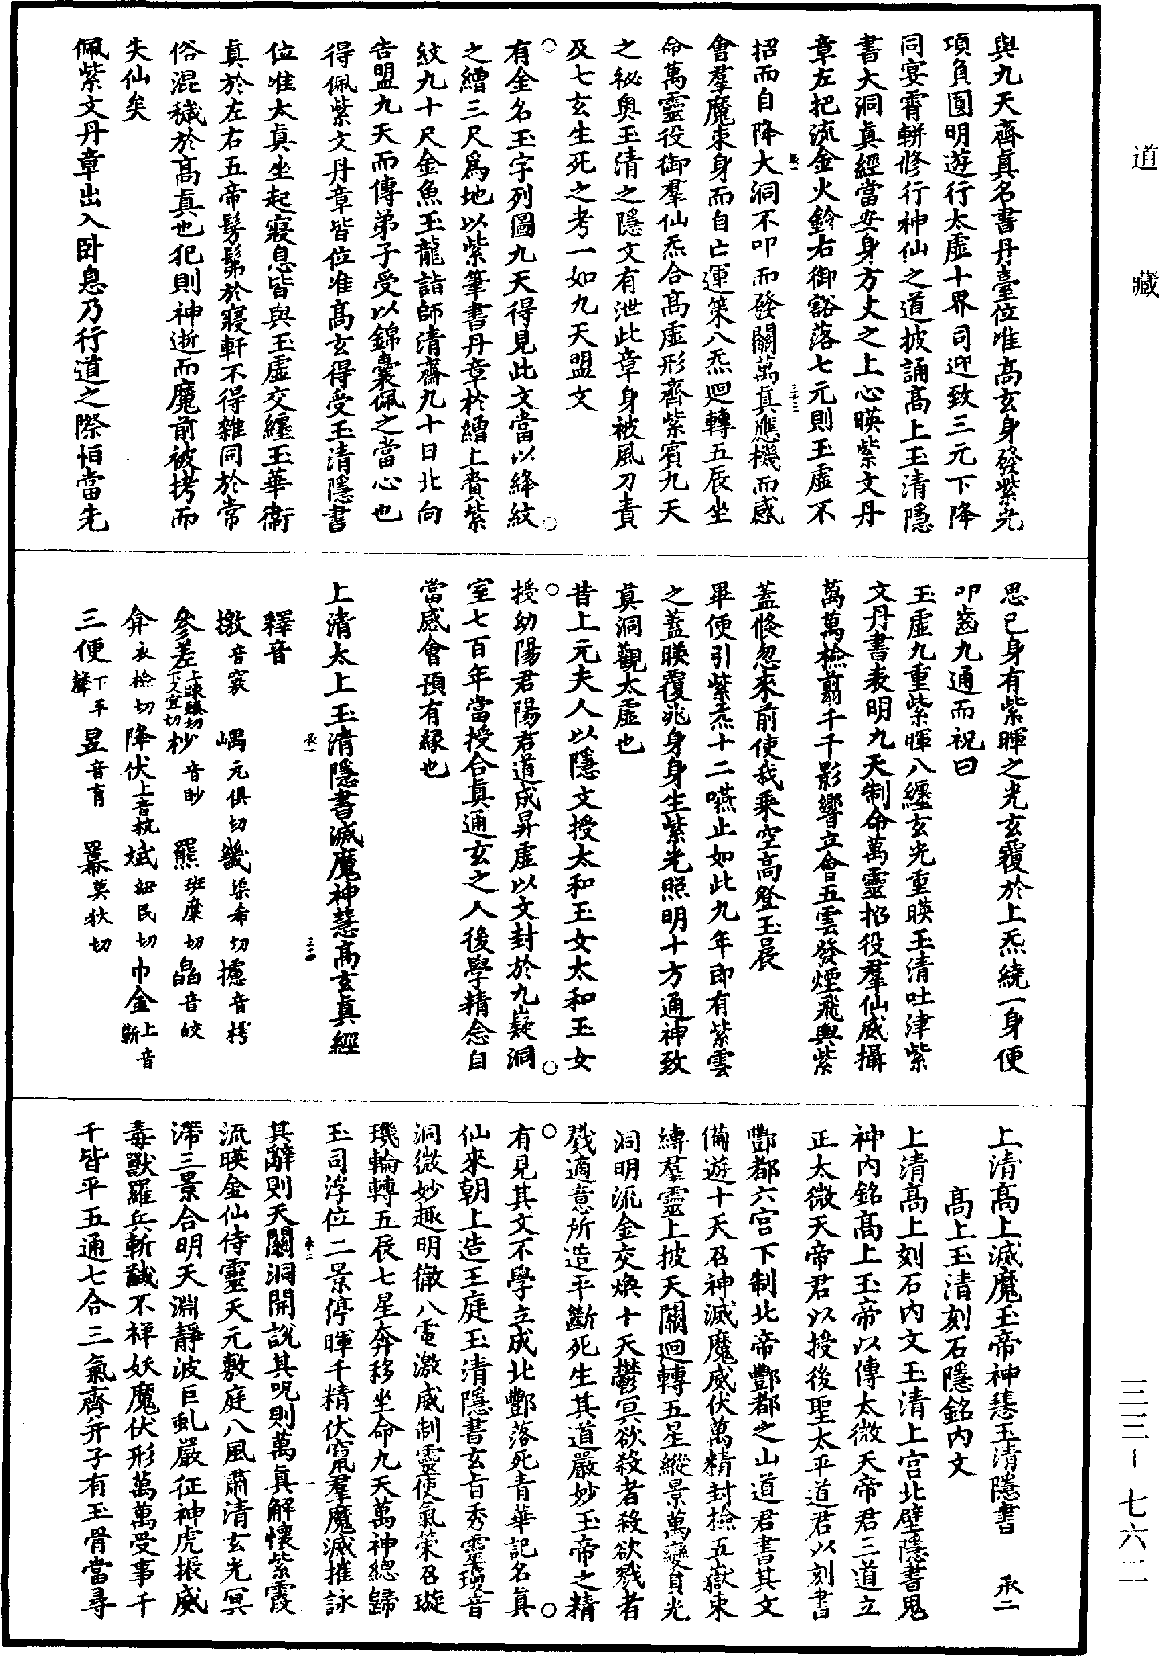 道藏
三三－七六二
與九天齊真名書丹臺位准高玄身發紫光
項負圓明遊行太虛十界司迎致三元下降
同宴霄輧修行神仙之道披誦高上玉清隱
書大洞真經當安身方丈之上心暎紫文丹
章左把流金火鈴右御豁落七元則玉虛不
招而自降大洞不叩而發關萬真應機而感
會羣魔束身而自亡運策八炁迴轉五辰坐
命萬靈役御羣仙炁合高虛形齊紫賓九天
之秘奧玉清之隱文有泄此章身被風刀責
及七玄生死之考一如九天盟文
有金名玉字列圖九天得見此文當以絳紋
之繒三尺爲地以紫筆書丹章於繒上賫紫
紋九十尺金魚玉龍詣師清齋九十日北向
告盟九天而傳弟子受以錦囊佩之當心也
得佩紫文丹章皆位准高玄得受玉清隱書
位准太真坐起寢息皆與玉虛交纏玉華衞
真於左右五帝髣髴於寢軒不得雜同於常
俗混穢於高真也犯則神逝而魔前被拷而
失仙矣
佩紫文丹章出入卧息乃行道之際恒當先
思己身有紫暉之光玄覆於上炁繞一身便
叩齒九通而祝曰
玉虛九重紫暉八纏玄光重暎玉清吐津紫
文丹書表明九天制命萬靈招役羣仙威攝
萬萬檢翦千千影響立會五雲發煙飛輿紫
蓋倐忽來前使我乘空高登玉晨
畢便引紫炁十二嚥止如此九年即有紫雲
之蓋暎覆兆身身生紫光照明十方通神致
真洞觀太虛也
昔上元夫人以隱文授太和玉女太和玉女
授幼陽君陽君道成昇虛以文封於九嶷洞
室七百年當授合真通玄之人後學精念自
當感會預有緣也
上清太上玉清隱書滅魔神慧高玄真經
釋音
檄音寞　嵎元俱切　幾渠希切　攄音摴
參差上疎簪切下叉宜切　杪音眇　羆班糜切　皛音皎
弇衣檢切　降伏上音杭　斌鈕民切　巾金上音斬
三便下平聲　昱音育　羃莫狄切
上清高上滅魔玉帝神慧玉清隱書　承二
高上玉清刻石隱銘內文
上清高上刻石內文玉清上宮北壁隱書鬼
神內銘高上玉帝以傳太微天帝君三道立
正太微天帝君以授後聖太平道君以刻書
酆都六宮下制北帝酆都之山道君書其文
備遊十天召神滅魔威伏萬精封撿五嶽束
縛羣靈上披天關迴轉五星縱景萬變負光
洞明流金交煥十天鬱冥欲殺者殺欲戮者
戮適意所造平斷死生其道嚴妙玉帝之精
有見其文不學立成北酆落死青華記名真
仙來朝上造王庭玉清隱書玄旨秀靈瓊音
洞微妙趣明徹八電激威制靈使氣策召璇
璣輪轉五辰七星奔移坐命九天萬神總歸
玉司浮位二景停暉千精伏竄羣魔滅摧詠
其辭則天關洞開說其呪則萬真解懷紫霞
流暎金仙侍靈天元敷庭八風肅清玄光冥
滯三景合明天淵靜波巨虬嚴征神虎振威
毒獸羅兵斬馘不祥妖魔伏形萬萬受事千
千皆平五通七合三氣齊并子有玉骨當尋